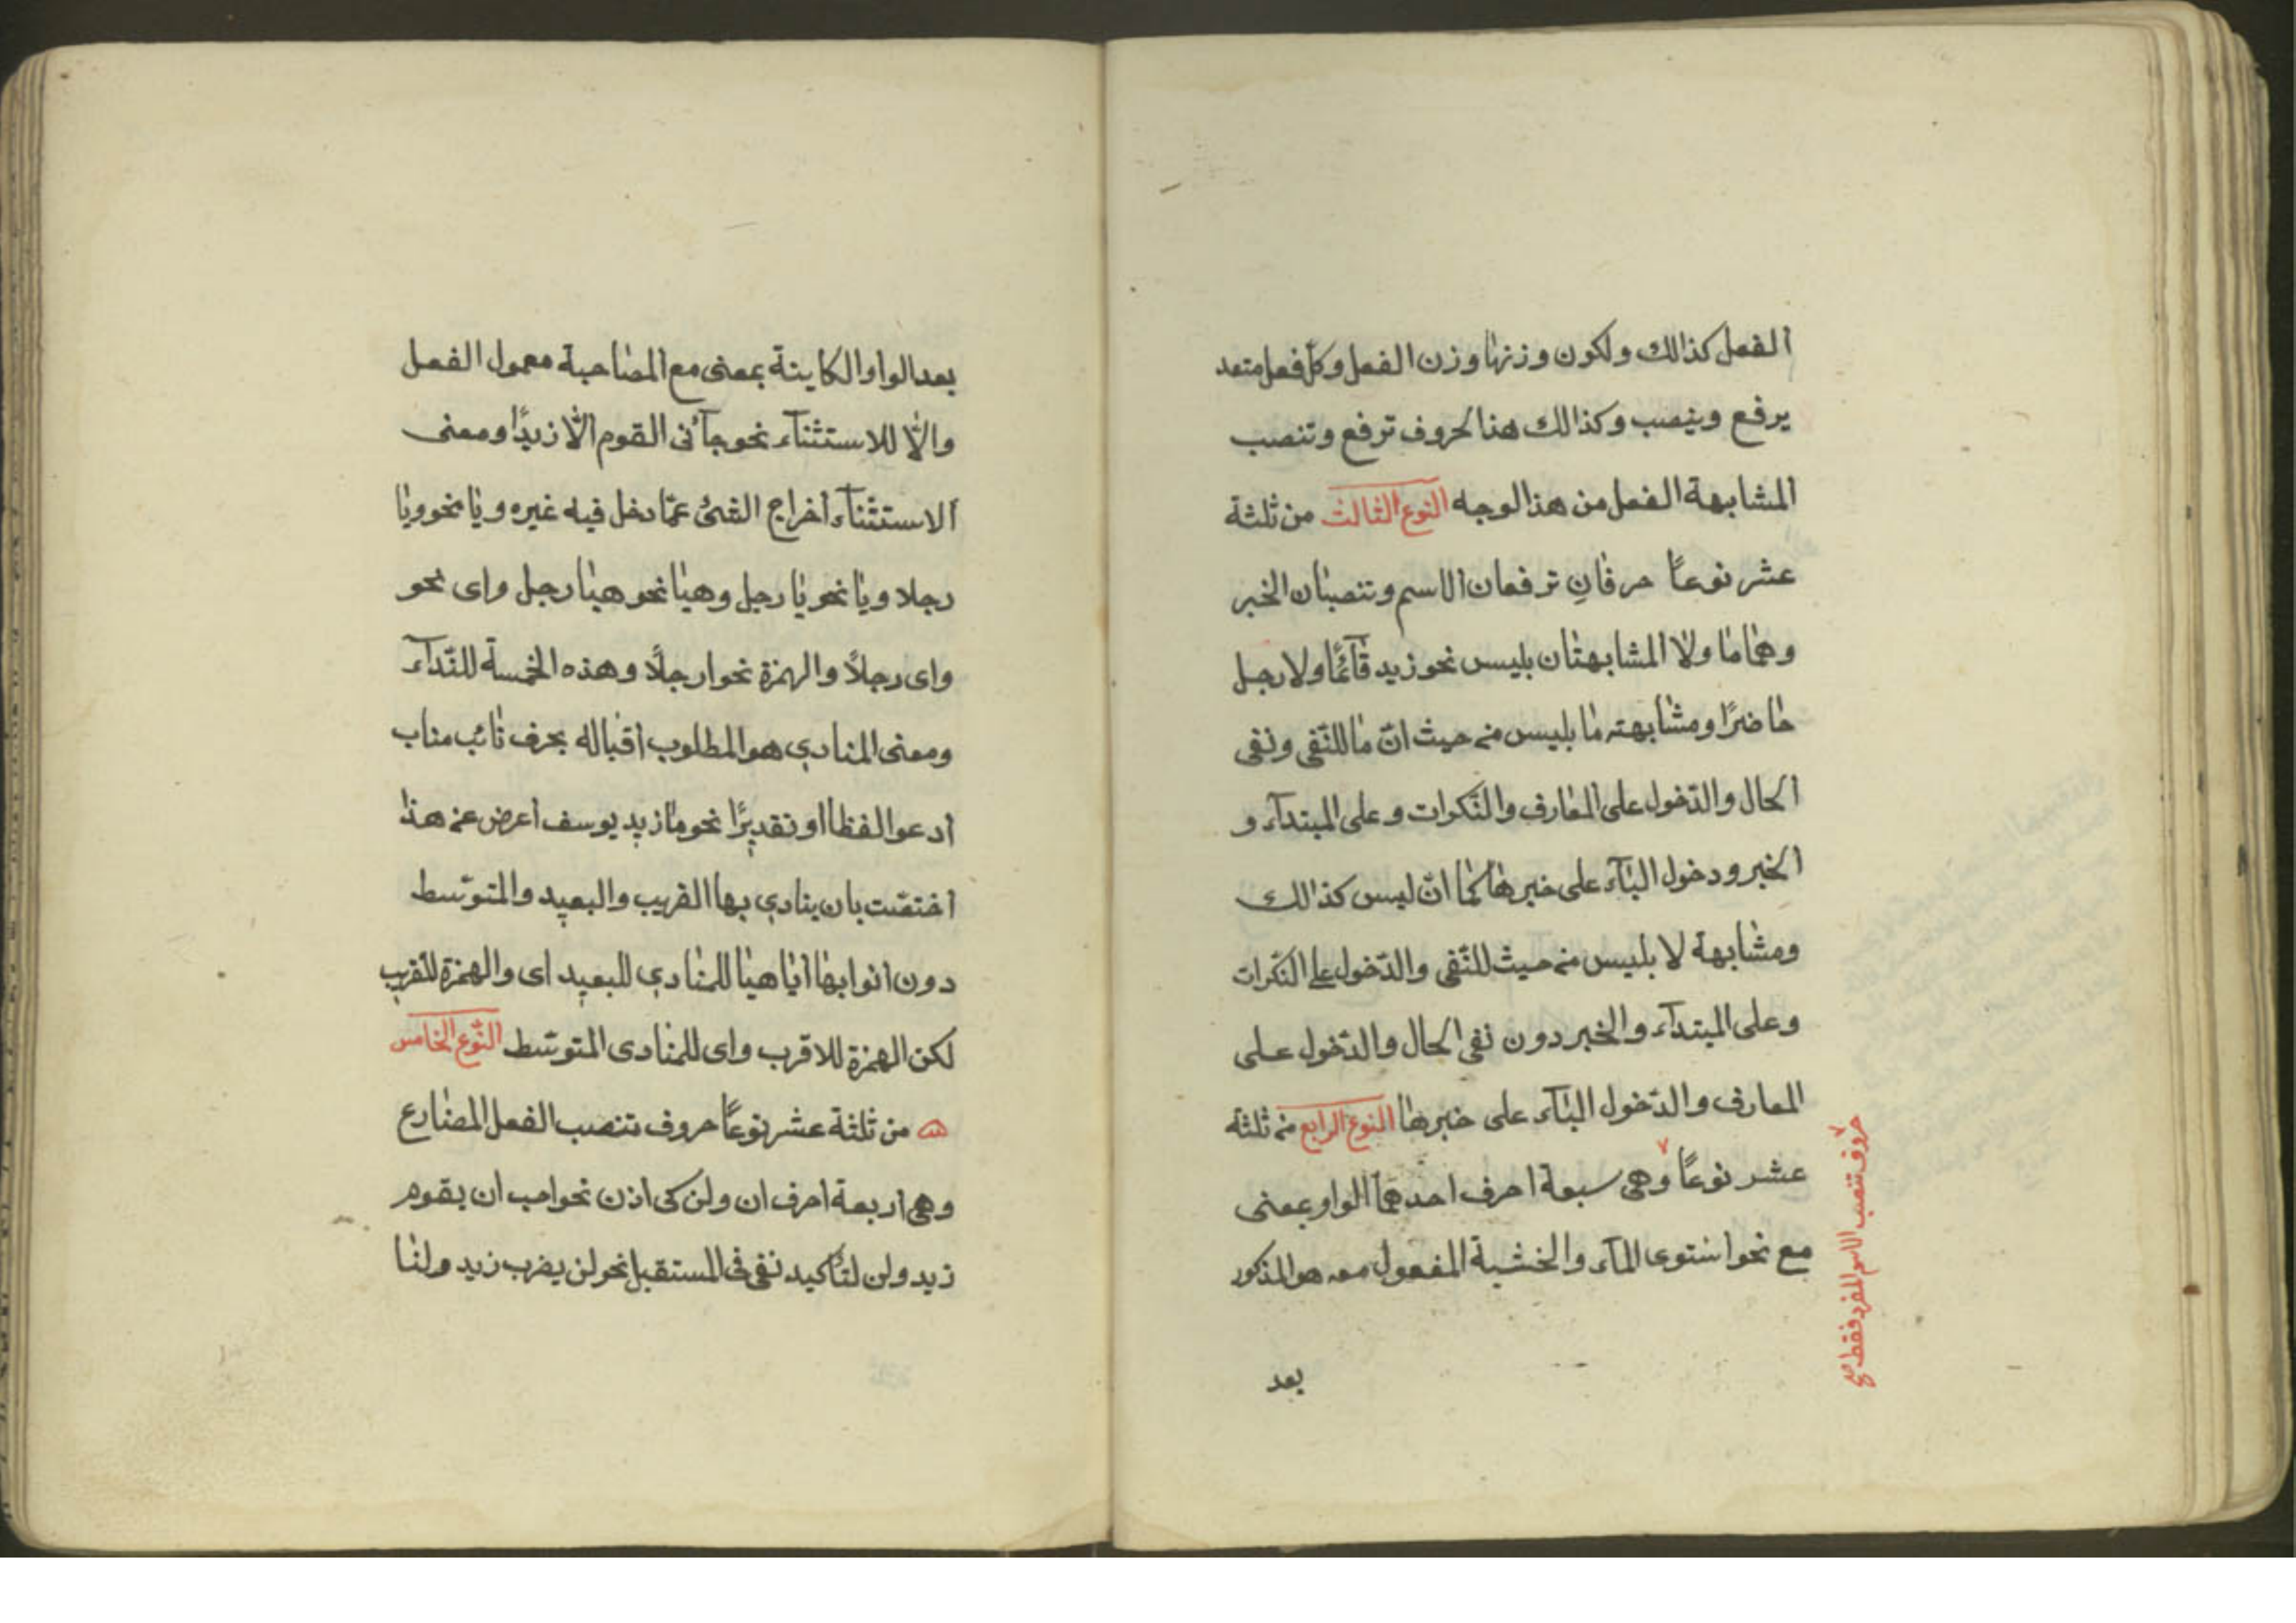 الفعل كذالك ولكون وزنها وزن الفعل وكلّ فعل متعد
يرفع وينصب وكذالك هذا لحروف ترفع وتنصب
المشابهة الفعل من هذا لوجه النوع الثالث من ثلثة
عشر نوعًا حرفانِ ترفعان الاسم وتنصبان الخبر
وهما ما ولا المشابهتان بليس نحو زيد قآئمًا ولا رجل
حاضرًا ومشابهته ما بليس من حيث انّ ما للنّفى ونفى
الحال والدّخول على المعارف والنّكرات وعلى المبتدآء و
الخبر ودخول البآء على خبرها كما انّ ليس كذالك
ومشابهة لا بليس من حيث للنّفى والدّخول على النّكرات
وعلى المبتدآء والخبر دون نفى الحال والدّخول على
المعارف والدّخول البآء على خبرها النوع الرابع من ثلثة
عشر نوعًا وهى سبعة احرف احدهمآ الواو بمعنى
مع نحو استوى المآء والخشبة المفعول معه هو المذكور
بعد
حروف تنصب الاسم المفرد فقط صح
بعد الواو الكاينة بمعنى مع المصاحبة معمول الفعل
والّا للاستثنآء نحو جآئنى القوم الّا زيدًا ومعنى
الاستثنآء اخراج الشئ عمّا دخل فيه غيره ويا نحو ويا
رجلا ويا نحو يا رجل وهيا نحو هيا رجل واى نحو
واى رجلاً والهمزة نحو ارجلاً وهذه الخمسة للنّدآء
ومعنى المنادي هو المطلوب اقباله بحرف نائب مناب
ادعو الفظا او تقديرًا نحو ما زيد يوسف اعرض عن هذا
اختصّت بان ينادي بها القريب والبعيد والمتوسّط
دون انوابها ايا هيا للمنادي للبعيد اى والهمزة للقريب
لكن الهمزة للاقرب واى للمنادى المتوسّط النّوع الخامس
من ثلثة عشر نوعًا حروف تنصب الفعل المضارع
وهى اربعة احرف ان ولن كى اذن نحو احب ان يقوم
زيد ولن لتأكيد نفى فى المستقبل نحو لن يضرب زيد ولنا